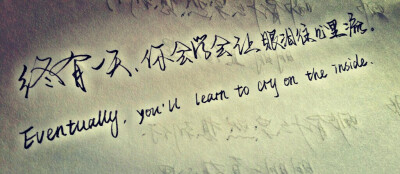 终有一天、你会学会让眼泪往心里流.
Eventually, you'll learn to cry on the inside.